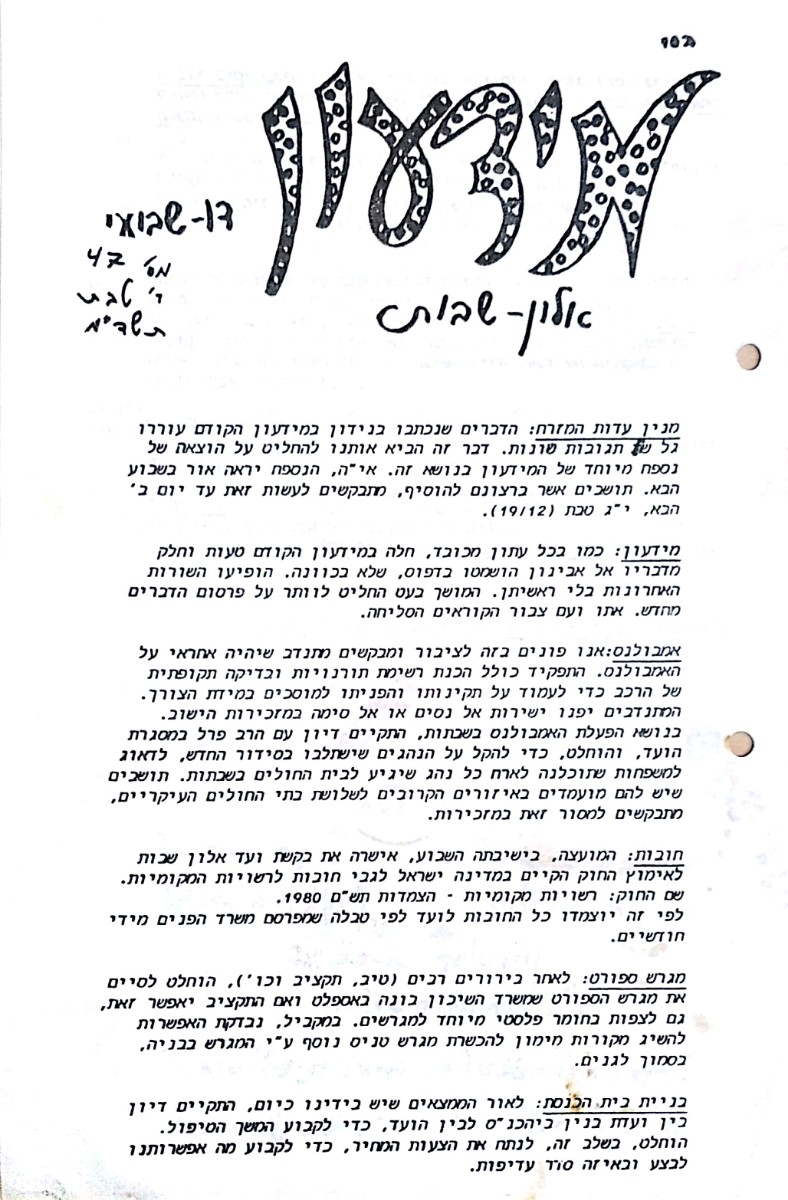 בס"ד
מידעון
דו-שבועי
מס' 47
ד' טבת
תשד"מ
אלון-שבות
מנין עדות המזרח: הדברים שנכתבו בנידון במידעון הקודם עוררו
גל של תגובות שונות. דבר זה הביא אותנו להחליט על הוצאה של
נספח מיוחד של המידעון בנושא זה. אי"ה, הנספח יראה אור בשבוע
הבא. תושבים אשר ברצונם להוסיף, מתבקשים לעשות זאת עד יום ב'
הבא, י"ג טבת (19/12).
מידעון: כמו בכל עתון מכובד, חלה במידעון הקודם טעות וחלק
מדבריו אל אבינון הושמטו בדפוס, שלא בכוונה. הופיעו השורות
האחרונות בלי ראשיתן. המושך בעט החליט לוותר על פרסום הדברים
מחדש. אתו ועם צבור הקוראים הסליחה.
אמבולנס:אנו פונים בזה לציבור ומבקשים מתנדב שיהיה אחראי על
האמבולנס. התפקיד כולל הכנת רשימת תורנויות ובדיקה תקופתית
של הרכב כדי לעמוד על תקינותו והפניתו למוסכים במידת הצורך.
המתנדבים יפנו ישירות אל נסים או אל סימה במזכירות הישוב.
בנושא הפעלת האמבולנס בשבתות, התקיים דיון עם הרב פרל במסגרת
הועד, והוחלט, כדי להקל על הנהגים שישתלבו בסידור החדש, לדאוג
למשפחות שתוכלנה לארח כל נהג שיגיע לבית החולים בשבתות. תושבים
שיש להם מועמדים באיזורים הקרובים לשלושת בתי החולים העיקריים,
מתבקשים למסור זאת במזכירות.
חובות: המועצה, בישיבתה השבוע, אישרה את בקשת ועד אלון שבות
לאימוץ החוק הקיים במדינה ישראל לגבי חובות לרשויות המקומיות.
שם החוק: רשויות מקומיות - הצמדות תש"ם 1980.
לפי זה יוצמדו כל החובות לועד לפי טבלה שמפרסם משרד הפנים מידי
חודשיים.
מגרש ספורט: לאחר בירורים רבים (טיב, תקציב וכו'), הוחלט לסיים
את מגרש הספורט שמשרד השיכון בונה באספלט ואם התקציב יאפשר זאת,
גם לצפות בחומר פלסטי מיוחד למגרשים. במקביל, נבדקת האפשרות
להשיג מקורות מימון להכשרת מגרש טניס נוסף ע"י המגרש בבניה,
בסמוך לגנים.
בניית בית הכנסת: לאור הממצאים שיש בידינו כיום, התקיים דיון
בין ועדת בנין ביהכנ"ס לבין הועד, כדי לקבוע המשך הטיפול.
הוחלט, בשלב זה, לנתח את הצעות המחיר, כדי לקבוע מה אפשרותנו
לבצע ובאיזה סדר עדיפות.